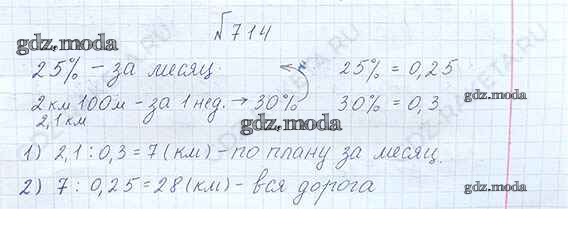 №714
gdz.moda
25% – за месяц. 25% = 0,25
2 км 100 м – за 1 нед. → 30% 30% = 0,3
gdz.moda
2,1 км
gdz.moda
1) 2,1 : 0,3 = 7 (км) – по плану за месяц.
2) 7 : 0,25 = 28 (км) – вся дорога
gdz.moda